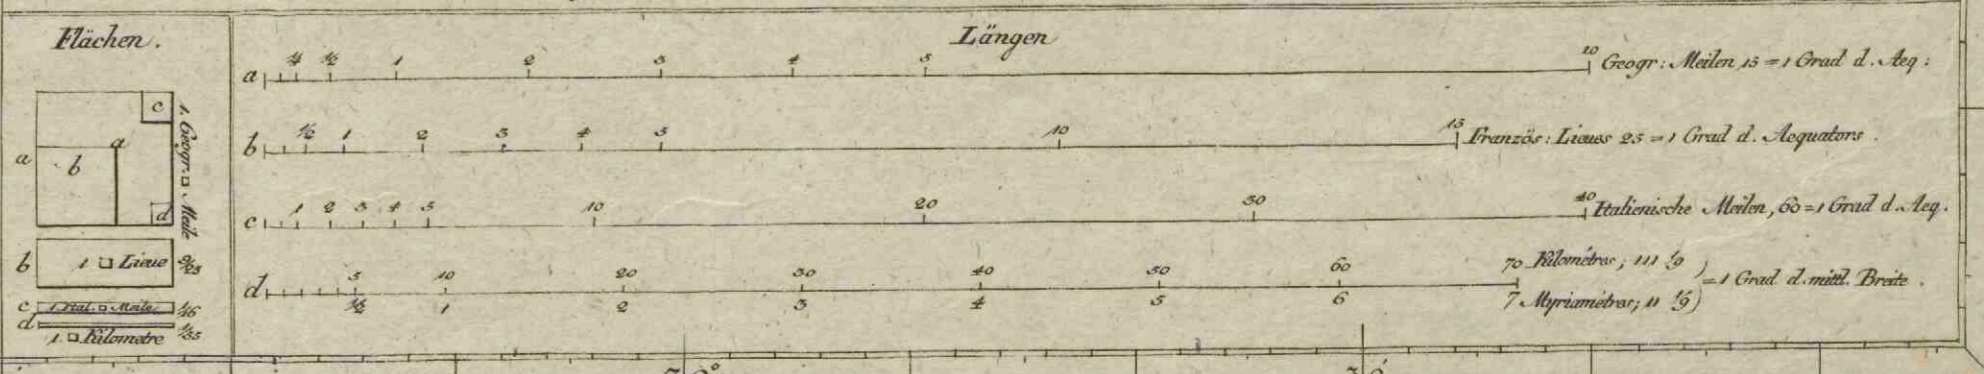 Flächen.
a
c
a
b
d
1. Geogr. □ Meile
b 1 □ Lieue 9/25
c 1 Ital. □ Meile 1/16
d 1/55
1. □ Kilometre
Längen
a ¼ ½ 1 2 3 4 5 10 Geogr: Meilen 15 = 1 Grad d. Aeq:
b ½ 1 2 3 4 5 10 15 Französ: Lieues 25 = 1 Grad d. Aequators.
c 1 2 3 4 5 10 20 30 40 Italienische Meilen, 60 = 1 Grad d. Aeq.
d 5 10 20 30 40 50 60 70 Kilométres; 111 1/9
½ 1 2 3 4 5 6 7 Myriamétres; 11 1/9
) = 1 Grad d. mittl. Breite.